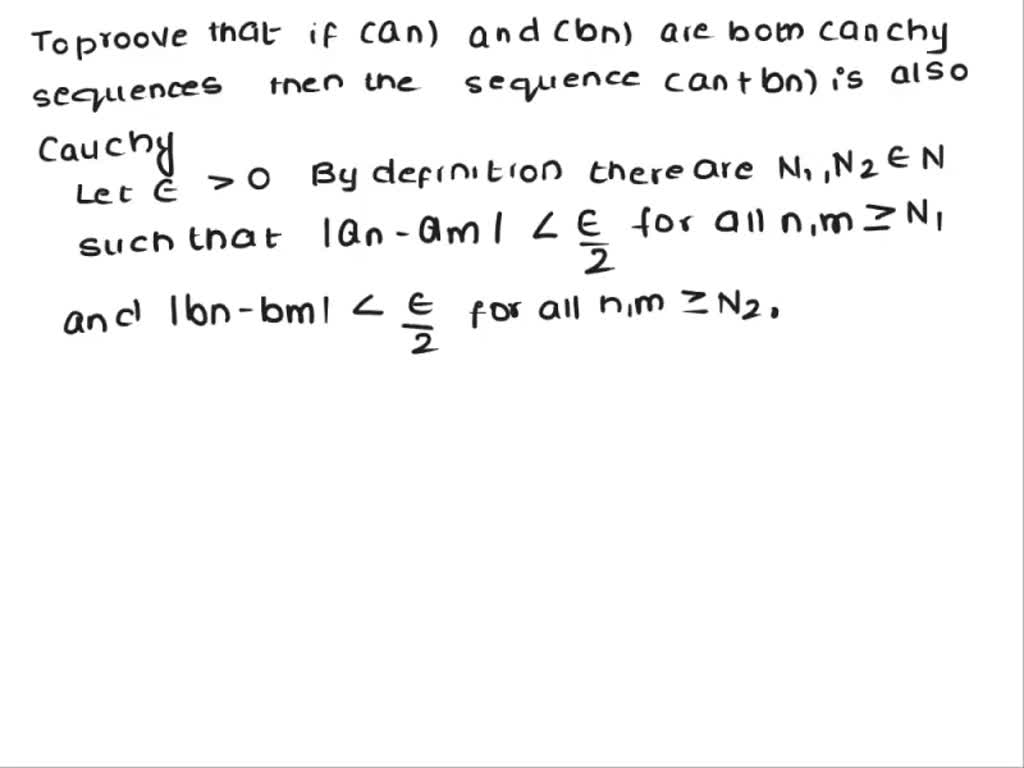 To proove that if (an) and (bn) are both canchy
sequences then the sequence (an + bn) is also
Cauchy
Let ∈ > 0 By definition there are N₁, N₂ ∈ N
such that |an - am| < ∈/2 for all n,m ≥ N₁
and |bn - bm| < ∈/2 for all n,m ≥ N₂.